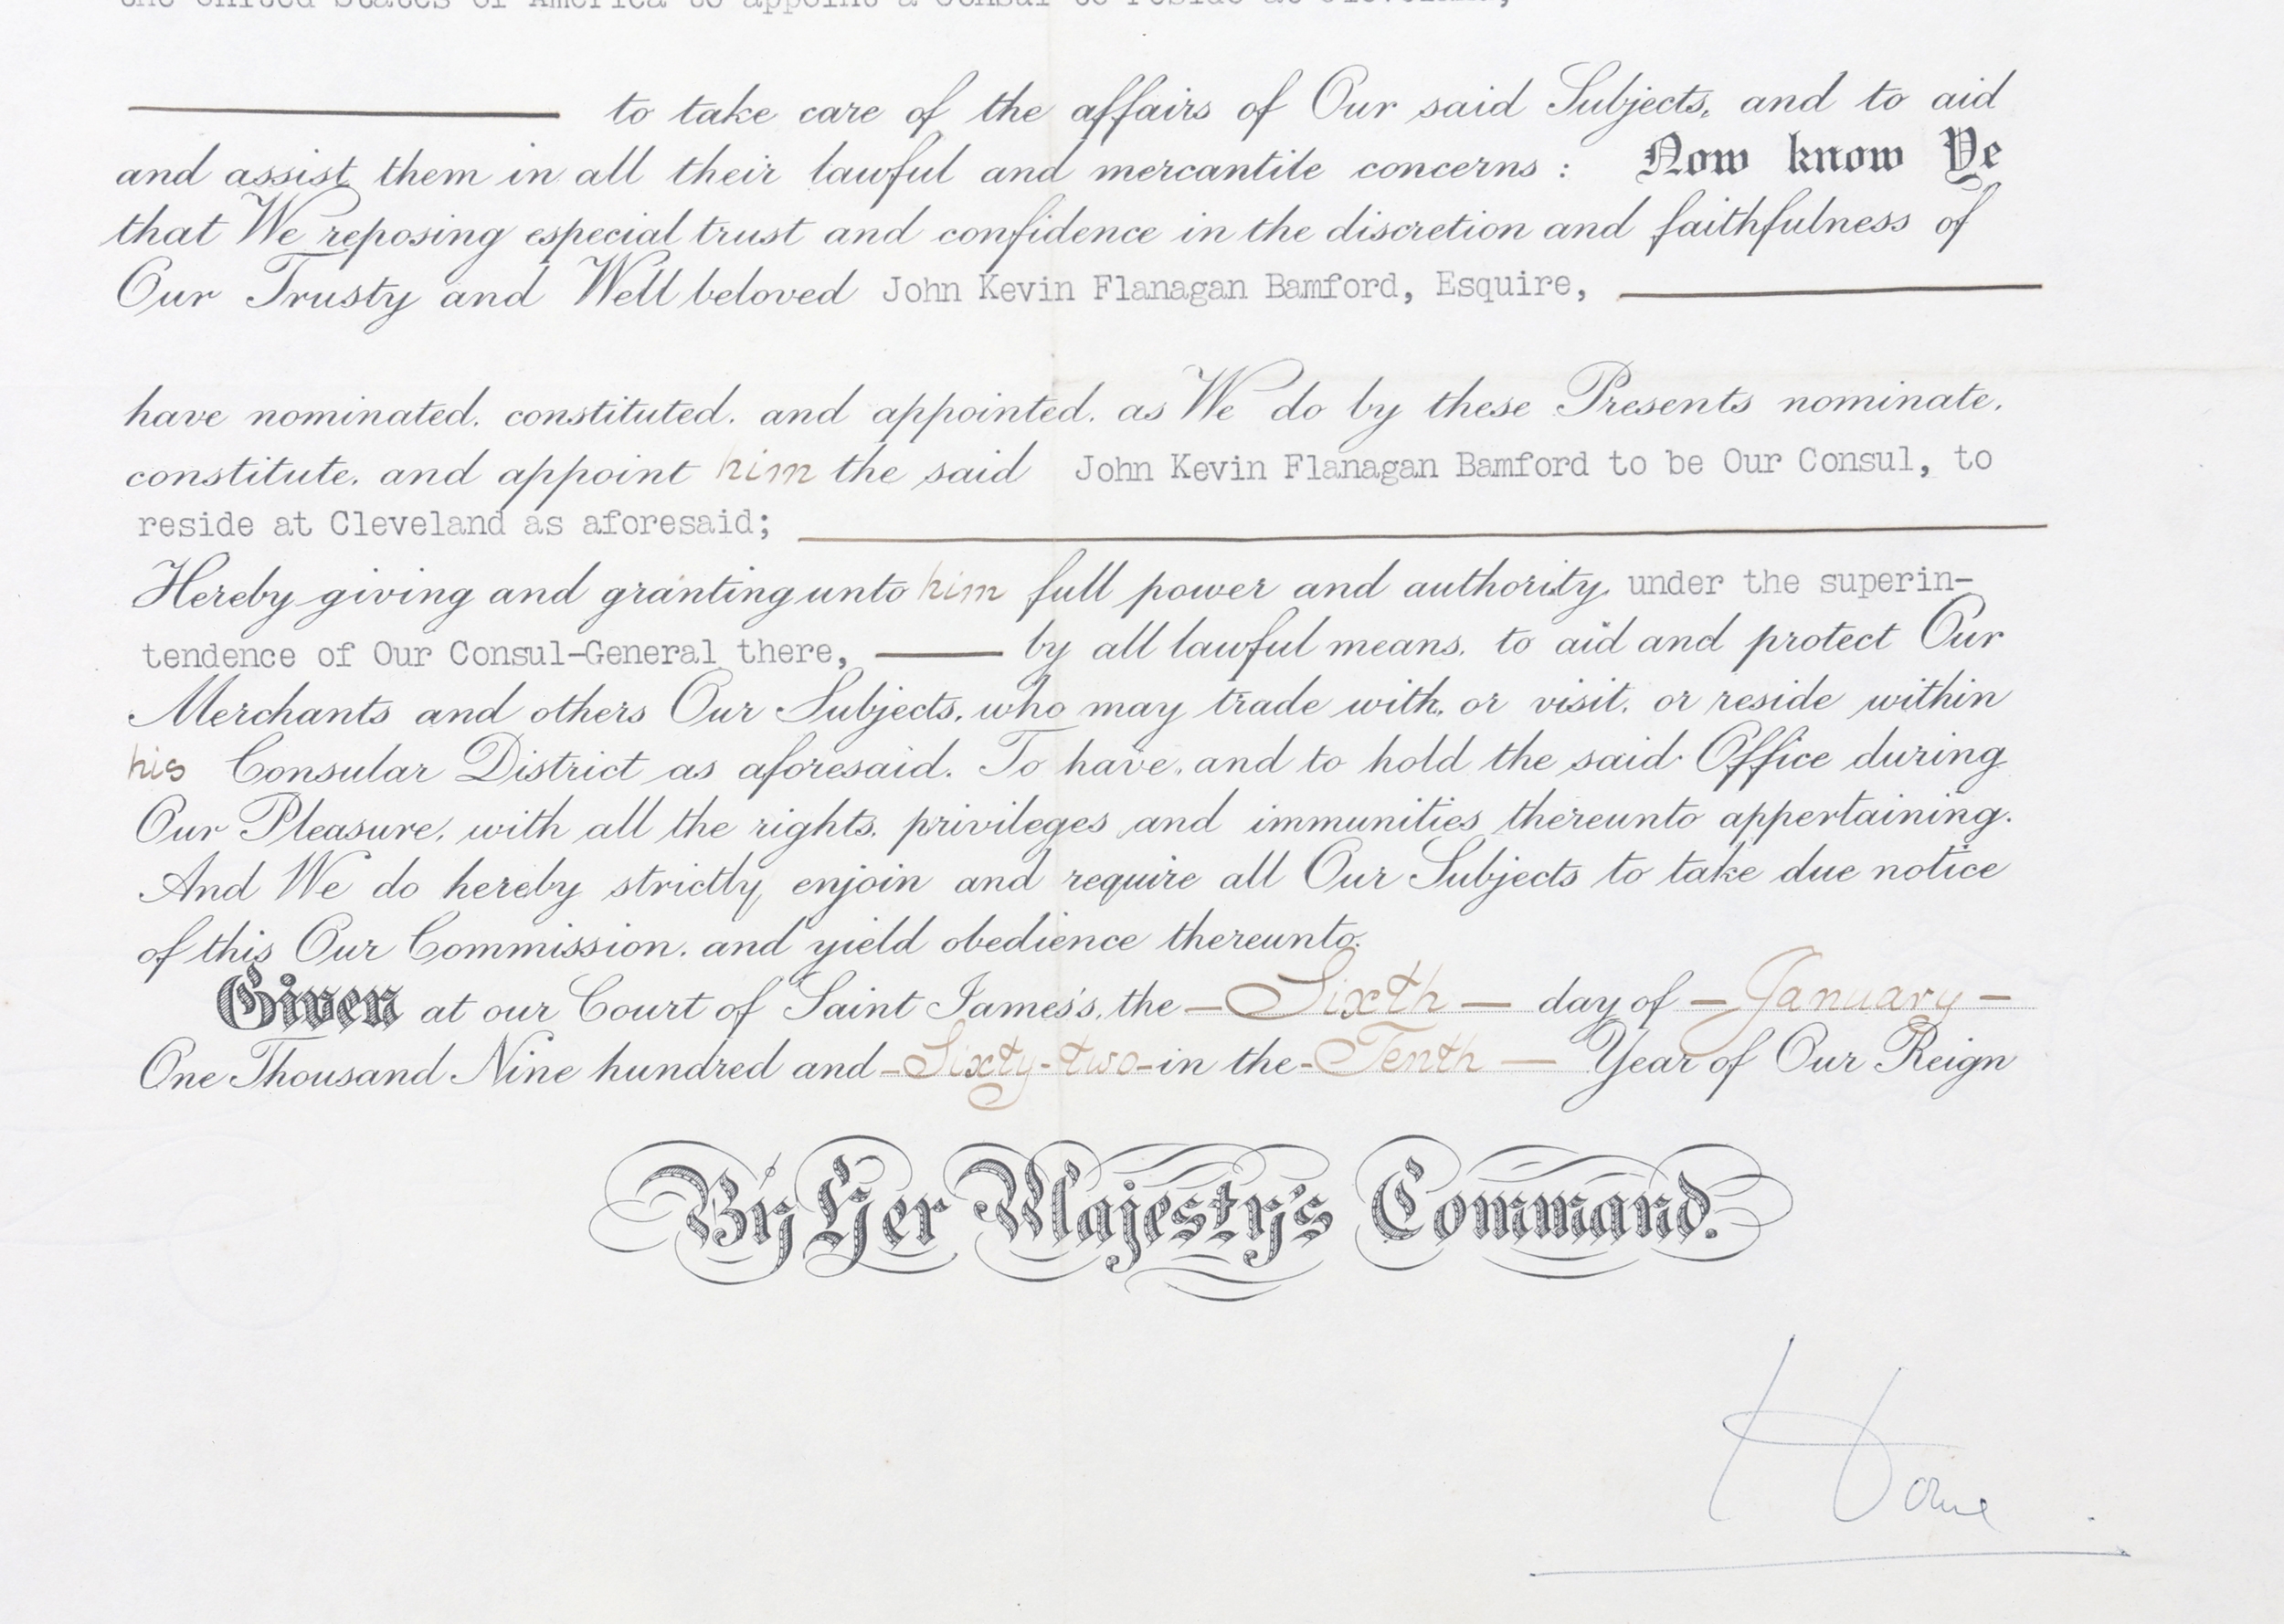 the United States of America to appoint a Consul to reside at Cleveland;
to take care of the affairs of Our said Subjects, and to aid
and assist them in all their lawful and mercantile concerns : Now know Ye
that We reposing especial trust and confidence in the discretion and faithfulness of
Our Trusty and Well beloved John Kevin Flanagan Bamford, Esquire,
have nominated, constituted, and appointed, as We do by these Presents nominate,
constitute, and appoint him the said John Kevin Flanagan Bamford to be Our Consul, to
reside at Cleveland as aforesaid;
Hereby giving and granting unto him full power and authority, under the superin-
tendence of Our Consul-General there, by all lawful means, to aid and protect Our
Merchants and others Our Subjects, who may trade with, or visit, or reside within
his Consular District as aforesaid. To have, and to hold the said Office during
Our Pleasure, with all the rights, privileges and immunities thereunto appertaining.
And We do hereby strictly enjoin and require all Our Subjects to take due notice
of this Our Commission, and yield obedience thereunto.
Given at our Court of Saint James's, the - Sixth - day of - January -
One Thousand Nine hundred and - Sixty-two - in the - Tenth - Year of Our Reign
By Her Majesty's Command.
Home